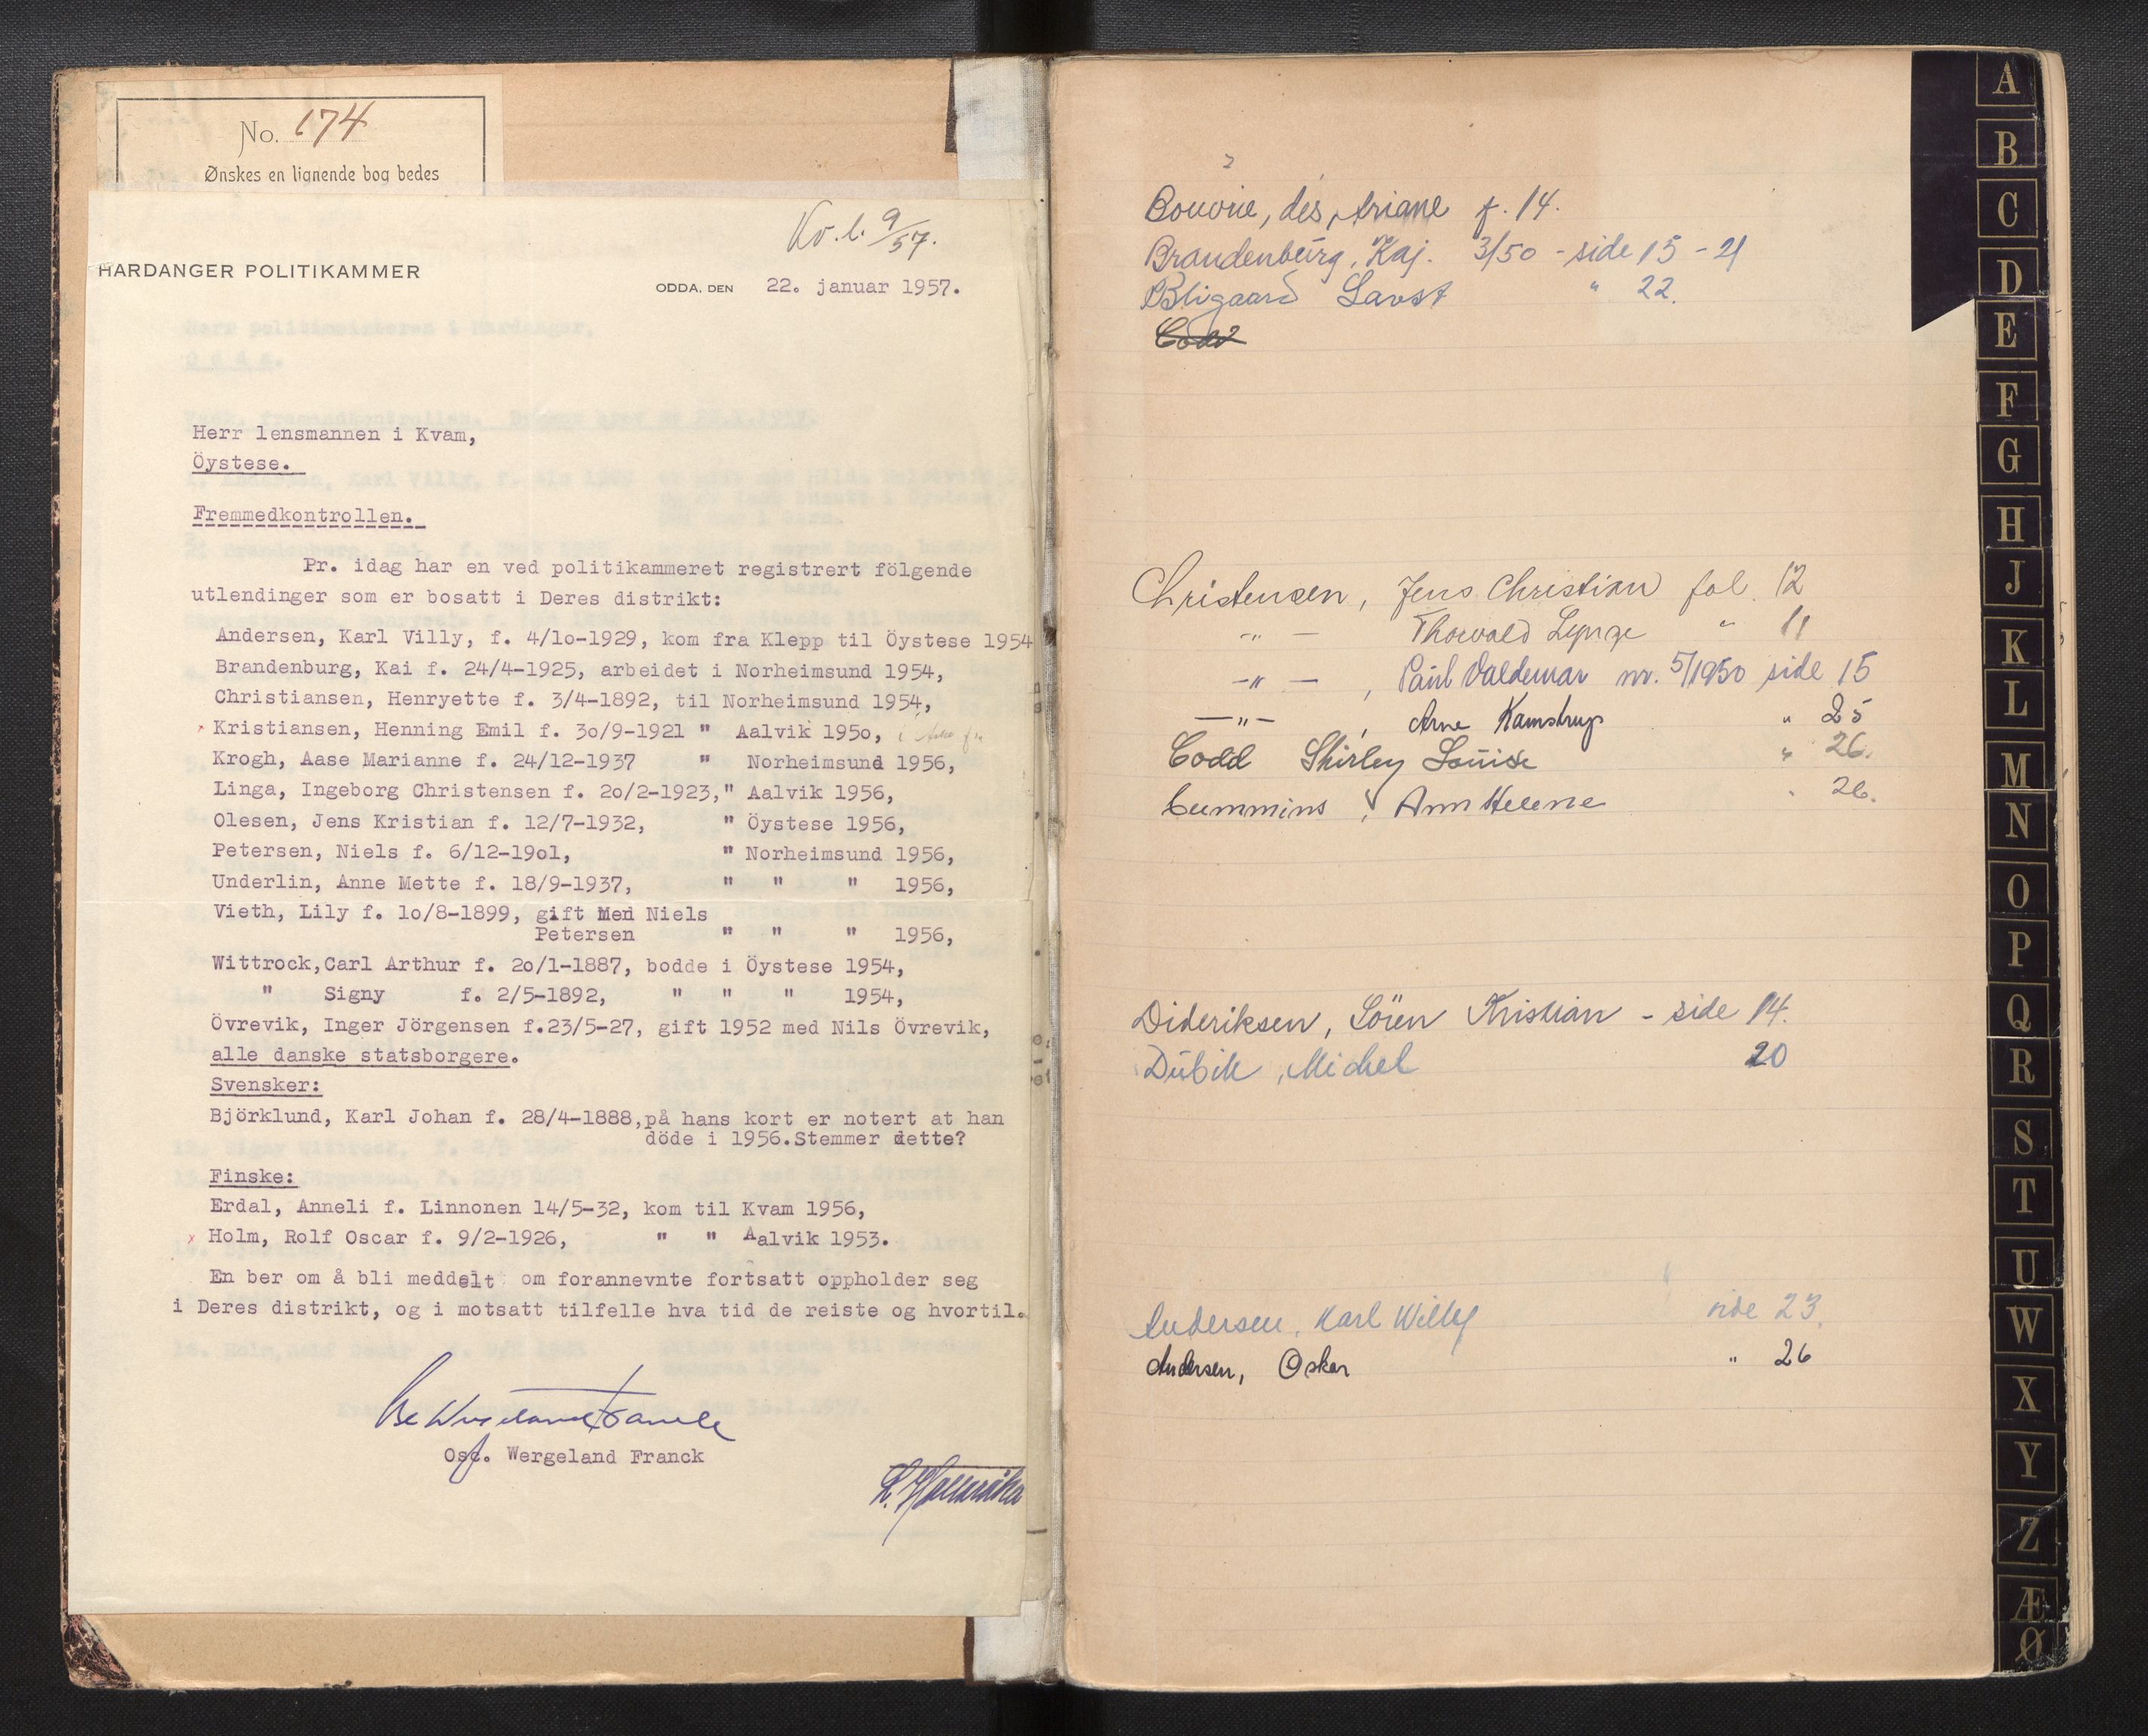 No. 174
Ønskes en lignende bog bedes
Kv. l. 9/57.
HARDANGER POLITIKAMMER
ODDA, DEN 22. januar 1957.
Herr lensmannen i Kvam,
Öystese.
Fremmedkontrollen.
Pr. idag har en ved politikammeret registrert fölgende
utlendinger som er bosatt i Deres distrikt:
Andersen, Karl Villy, f. 4/1o-1929, kom fra Klepp til Öystese 1954
Brandenburg, Kai f. 24/4-1925, arbeidet i Norheimsund 1954,
Christiansen, Henryette f. 3/4-1892, til Norheimsund 1954,
x Kristiansen, Henning Emil f. 3o/9-1921 " Aalvik 195o,
Krogh, Aase Marianne f. 24/12-1937 " Norheimsund 1956,
Linga, Ingeborg Christensen f. 2o/2-1923," Aalvik 1956,
Olesen, Jens Kristian f. 12/7-1932, " Öystese 1956,
Petersen, Niels f. 6/12-19o1, " Norheimsund 1956,
Underlin, Anne Mette f. 18/9-1937, " " " 1956,
Vieth, Lily f. 1o/8-1899, gift Med Niels
Petersen " " " 1956,
Wittrock,Carl Arthur f. 2o/1-1887, bodde i Öystese 1954,
" Signy f. 2/5-1892, " " " 1954,
Övrevik, Inger Jörgensen f.23/5-27, gift 1952 med Nils Övrevik,
alle danske statsborgere.
Svensker:
Björklund, Karl Johan f. 28/4-1888,på hans kort er notert at han
döde i 1956.Stemmer dette?
Finske:
Erdal, Anneli f. Linnonen 14/5-32, kom til Kvam 1956,
x Holm, Rolf Oscar f. 9/2-1926, " " Aalvik 1953.
En ber om å bli meddelt om forannevnte fortsatt oppholder seg
i Deres distrikt, og i motsatt tilfelle hva tid de reiste og hvortil.
Osc. Wergeland Franck
Bouvrie, des, Ariane f. 14.
Brandenburg, Kaj. 3/50 - side 15 - 21
Bligaard Lavst " 22.
Codd
Christensen, Jens Christian fol. 12
-"- Thorvald Lynge " 11
-"- , Paul Valdemar nr. 5/1950 side 15
-"- , Arne Kamstrup " 25
Codd Shirley Louise " 26.
Cummins , Ann Helene " 26.
Dideriksen, Sören Kristian - side 14.
Dubik, Michel 20
Andersen, Karl Willy side 23.
Andersen, Oskar " 26
A
B
C
D
E
F
G
H
J
K
L
M
N
O
P
Q
R
S
T
U
W
X
Y
Z
Æ
Ø